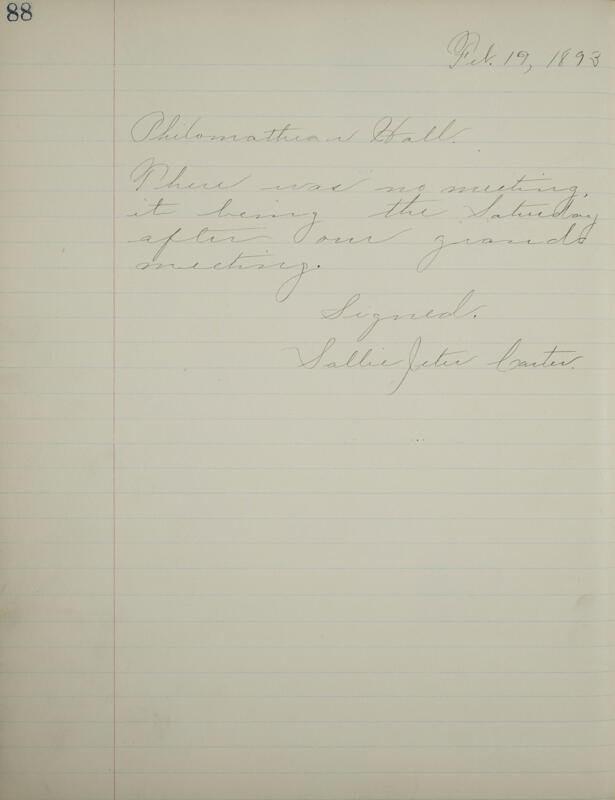 88
Feb. 19, 1893
Philomathean Hall.
There was no meeting,
it being the Saturday
after our grand
meeting.
Signed.
Sallie Jeter Carter.